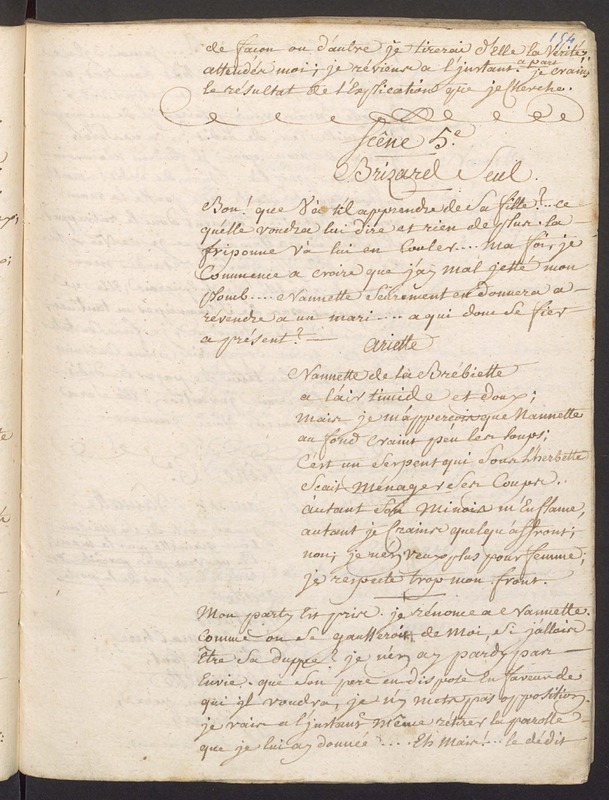 154
de façon ou d'autre je tirerai d'Elle la Vérité,
attendés moi; je réviens a l'instant. a part je crains
le résultat de l'Explication que je cherche.
Scêne 5.e
Brizard Seul.
Bon! que Va til apprendre de Sa fille? .. ce
qu'elle voudra lui dire et rien de plus. la
friponne Va lui en Couler.... Ma foi, je
Commence a croire que j'ay mal jetté mon
Plomb.... Nannette Seurement en donnera a
révendre a un mari.... a qui donc Se fier
a présent? —
Ariette
Nannette de la Brébiette
a l'air timide et doux;
Mais je m'apperçois que Nannette
au fond Craint peu les loups;
C'est un Serpent qui Sous l'herbette
Scait Ménager Ses Coups..
autant Son Minois m'Enflame,
autant je Crains quelqu'affront;
non, je n'en veux plus pour femme,
je respecte trop mon front.
Mon party Est pris. je rénonce a Nannette.
Comme on Se gausseroit de Moi, Si j'allois
Être Sa duppe! je n'en ay pardy pas
Envie. que Son pere en dispose En faveur de
qui il voudra, je n'y mets pas opposition.
je vais a l'instant même rétirer la parolle
que je lui ay donnée .... Eh Mais!... le dédit